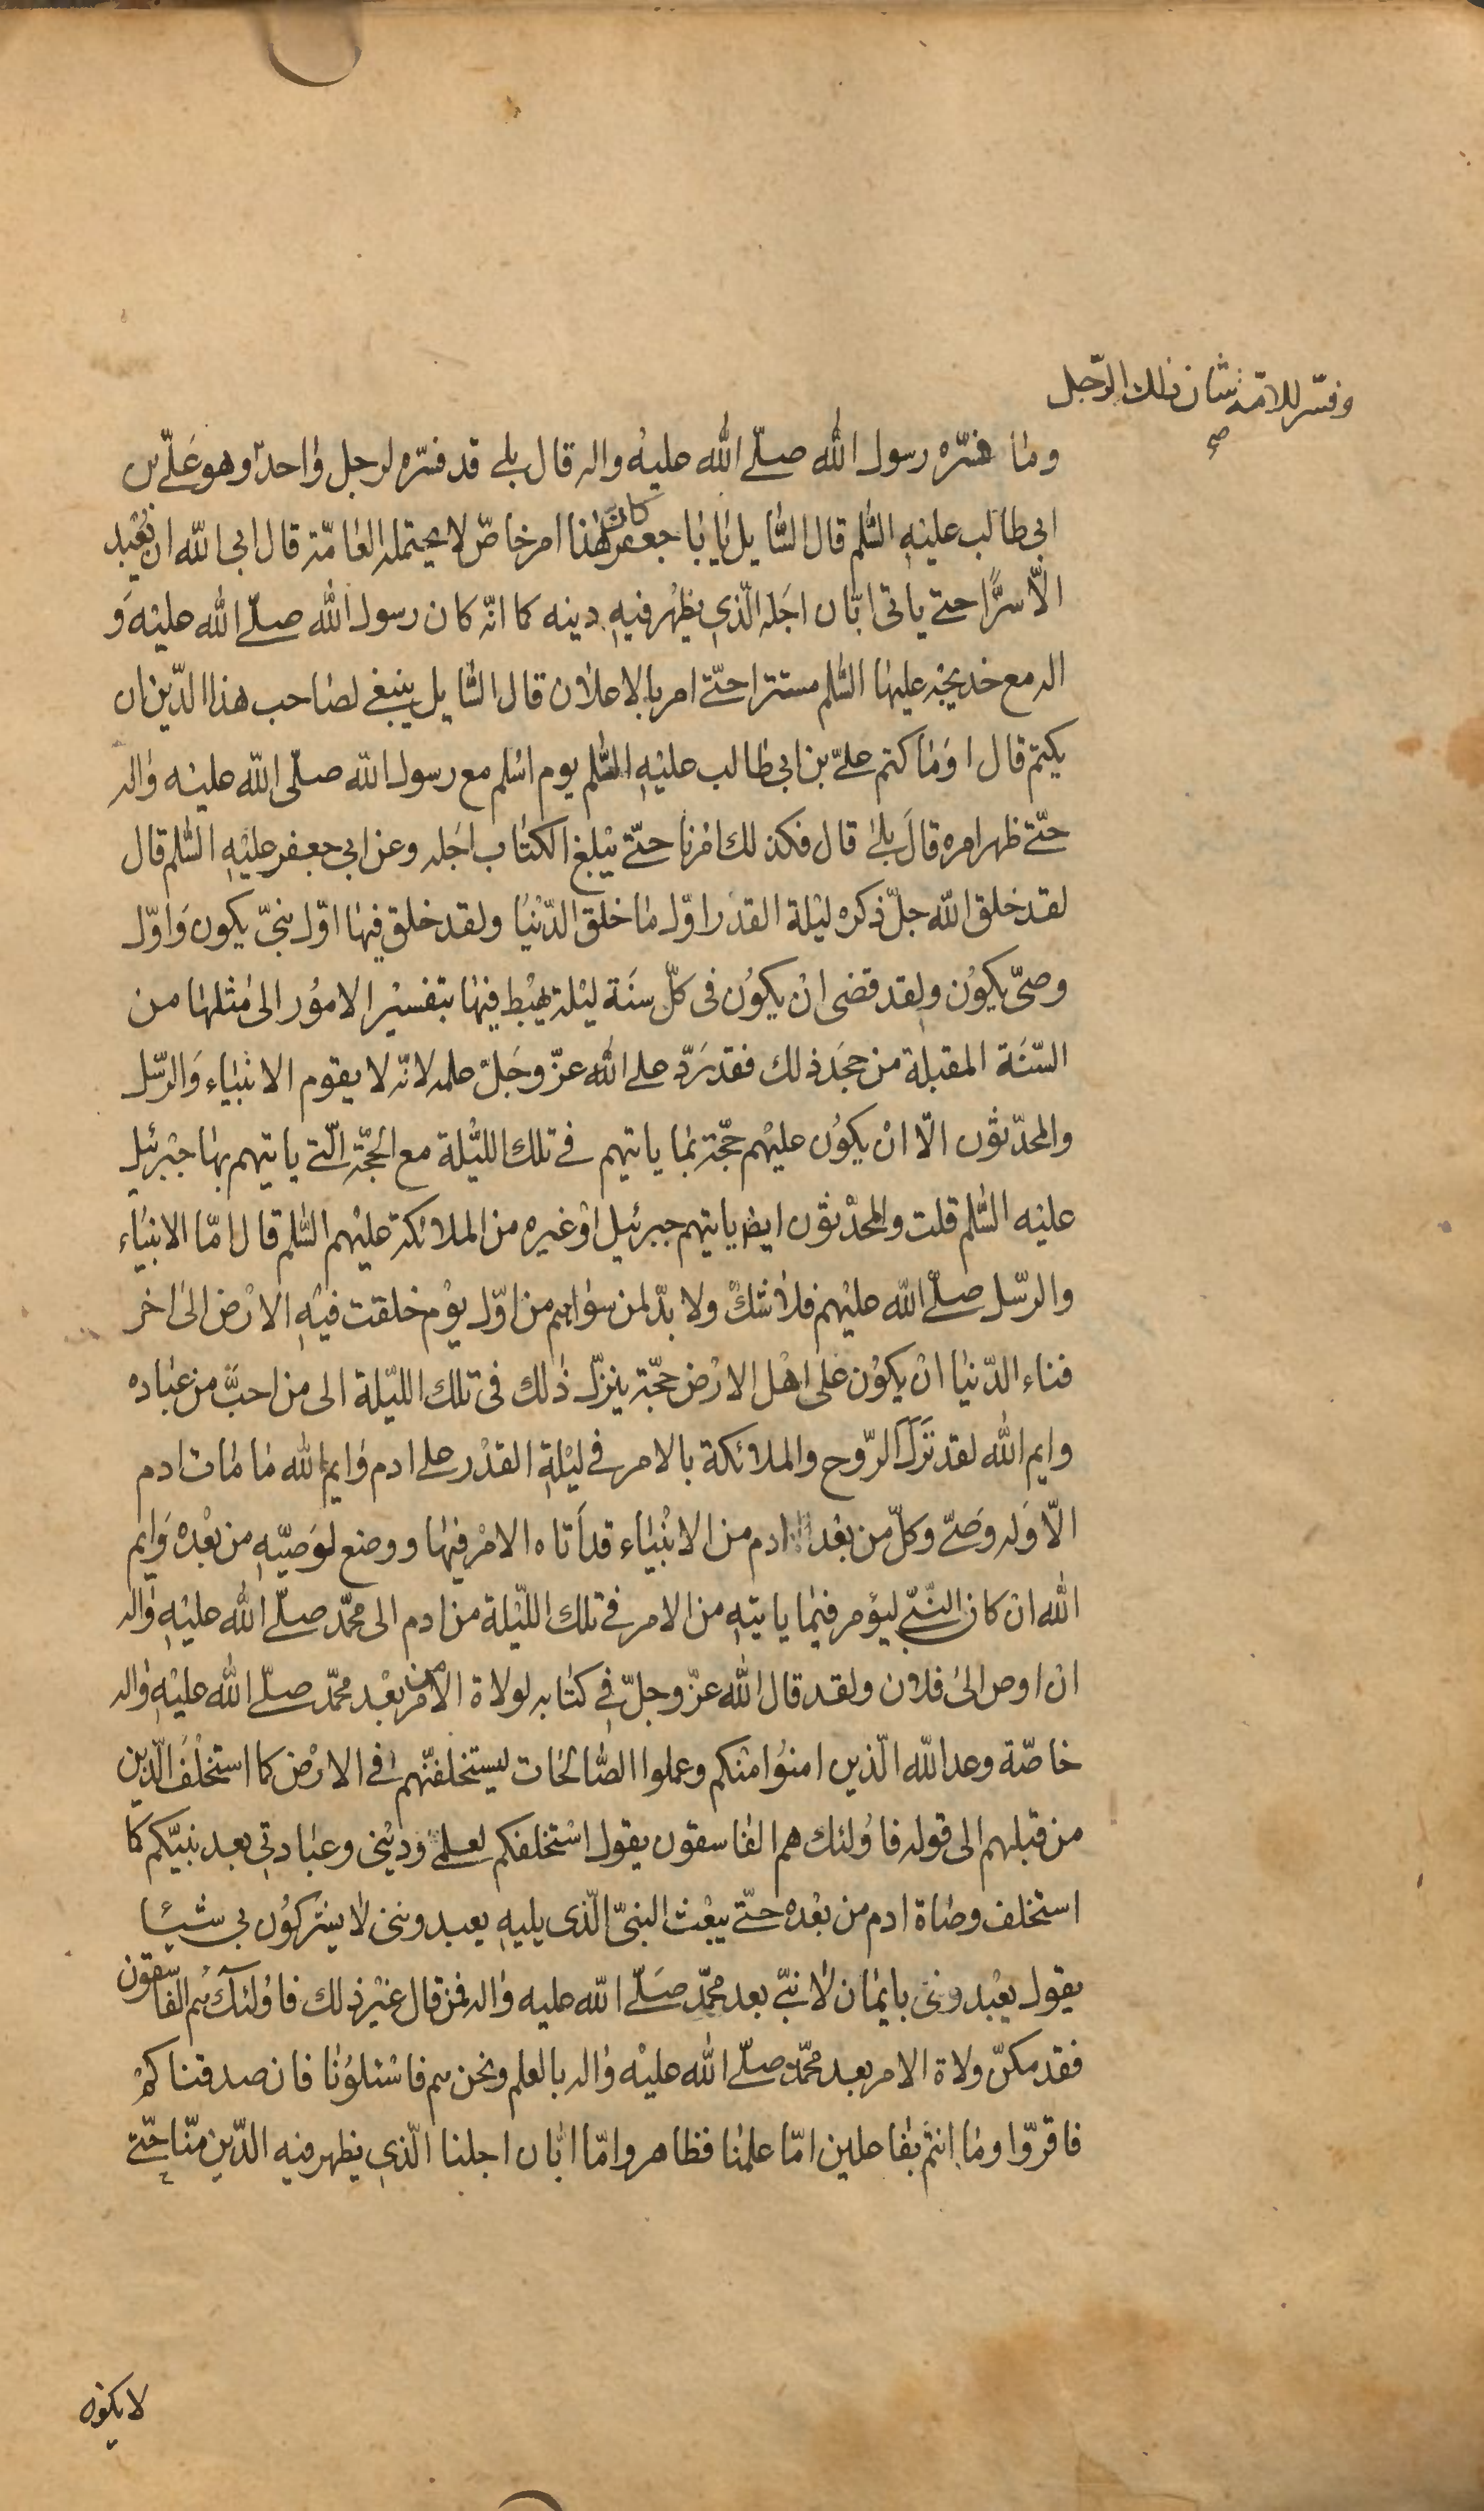 وفسّر للامّة شان ذلك الرّجل
صح
وما فسّره رسول الله صلّى الله عليه واله قال بلى قد فسّره لرجل واحد وهو علىّ بن
ابى طالب عليه السّلم قال السّايل يا با جعفر كان هذا امر خاصّ لا يحتمله العامّة قال ابى الله ان يُعْبد
الّا سرًّا حتى ياتى ابّان اجَله الّذى يظهر فيه دينه كما انّه كان رسول الله صلّى الله عليه و
اله مع خديجة عليها السّلم مستترا حتّى امر بالاعلان قال السّايل ينبغى لصاحب هذا الدّين ان
يكتم قال اوَما كتم علىّ بن ابى طالب عليه السّلم يوم اسْلم مع رسول الله صلّى الله عليه واله
حتّى ظهر امره قال بلى قال فكذلك امْرنا حتّى يبْلغ الكتاب اجَله وعن ابى جعفر عليْه السّلم قال
لقد خلق الله جلّ ذكره ليْلة القدْر اوّل ما خلق الدّنْيا ولقد خلق فيها اوّل نبىّ يكون وَاوّل
وصىّ يكوُن ولقد قضى انْ يكوُن فى كلّ سنَة ليْلة يهْبط فيها بتفسيْر الامُور الى مثلها من
السّنَة المقبلة من جحَد ذلك فقد رَدّ على الله عزّ وجَلّ علمه لانّه لا يقوم الانبْياء وَالرّسل
والمحدّثون الّا انْ يكوُن عليْهم حجّة بما ياتيهم فى تلك اللّيْلة مع الحجّة الّتى ياتيهم بها جبْرئيل
عليه السّلم قلت والمحدّثون ايضا ياتيهم جبرئيل اوْ غيره من الملائكة عليْهم السّلم قال امّا الانبْياء
والرّسل صلّى الله عليْهم فلا شكّ ولا بدّ لمن سواهم من اوّل يوْم خلقت فيْه الارْض الى اخر
فناء الدّنيا انْ يكوْن على اهْل الارْض حجّة ينزّل ذلك فى تلك اللّيْلة الى من احبّ من عباده
وايم الله لقد نَزَلَ الرّوح والملائكة بالامر فى ليْلة القدْر على ادم وايم الله ما مات ادم
الّا وَله وَصىّ وكلّ من بعْد ادم من الانْبْياء قد اَتاه الامْر فيها ووضع لوَصيّه من بعْده وَايم
الله ان كان النّبىّ ليؤمر فيْما ياتيه من الامر فى تلك اللّيْلة من ادم الى محمّد صلّى الله عليْه واله
ان اوص الى فلان ولقد قال الله عزّ وجلّ فى كتابه لولاة الامر من بعْد محمّد صلّى الله عليْه واله
خاصّة وعد الله الّذين امنوُا منكم وعملوا الصّالحات ليستخلفنّهم فى الارْض كما استخْلف الّذين
من قبلهم الى قوله فاوُلئك هم الفاسقون يقول اسْتخلفكم لعلمى ودينى وعبادتى بعد نبيّكم كما
استخلف وصاة ادم من بعْده حتّى يبْعث النبىّ الّذى يليه يعبدوننى لا يشركوُن بى شيْئا
يقول يعْبدوننى بايْمان لا نبىّ بعد محمّد صَلّى الله عليه واله فمن قال غيْر ذلك فاوُلئك هُم الفاسقون
فقد مكّن ولاة الامر بعد محمّد صلّى الله عليْه واله بالعلم ونحن هم فاسْئلوُنا فان صدقناكمْ
فاقرّوا وما انتمْ بفاعلين امّا علمنا فظاهر وامّا ابّان اجلنا الّذى يظهر فيه الدّين منّا حتّى
لا يكون